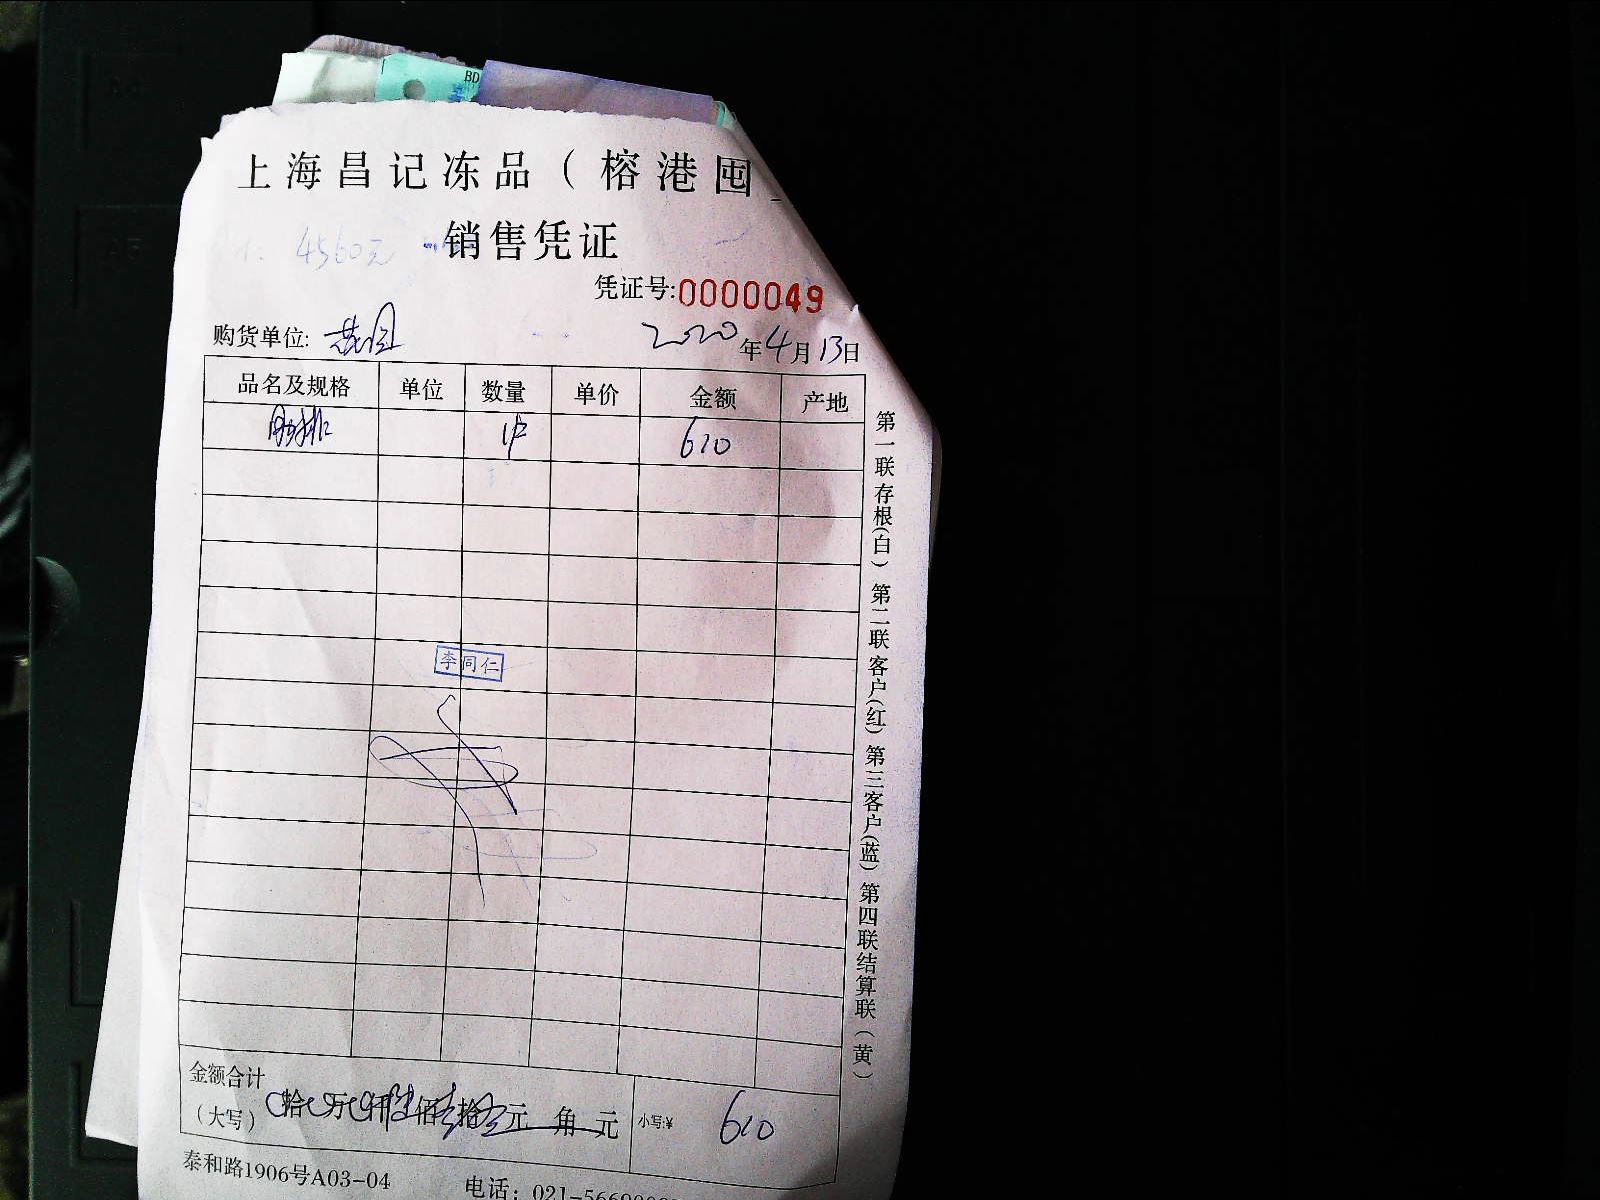 BD
上海昌记冻品（榕港囤
4560元
销售凭证
凭证号:0000049
购货单位:
2020年4月13日
品名及规格 单位 数量 单价 金额 产地
肋排 1 610
李同仁
金额合计
（大写） 拾 万 仟 佰 拾 元 角 元 小写:¥ 610
泰和路1906号A03-04 电话：021-5669
第一联存根(白) 第二联客户(红) 第三客户(蓝) 第四联结算联(黄)